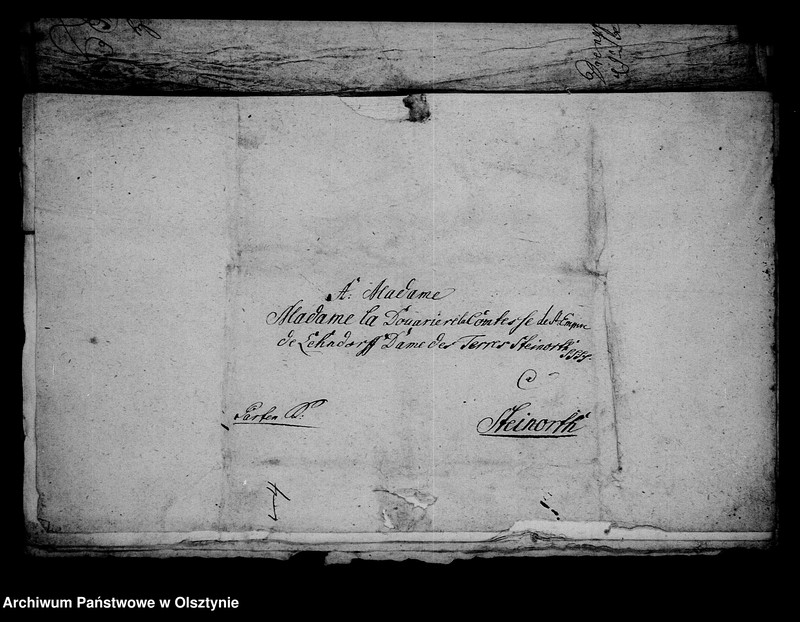 A: Madame
Madame la Douariere la Comtesse de St Empire
de Lehndorff Dame des Terres Steinorth
a
Steinorth
44
Archiwum Państwowe w Olsztynie